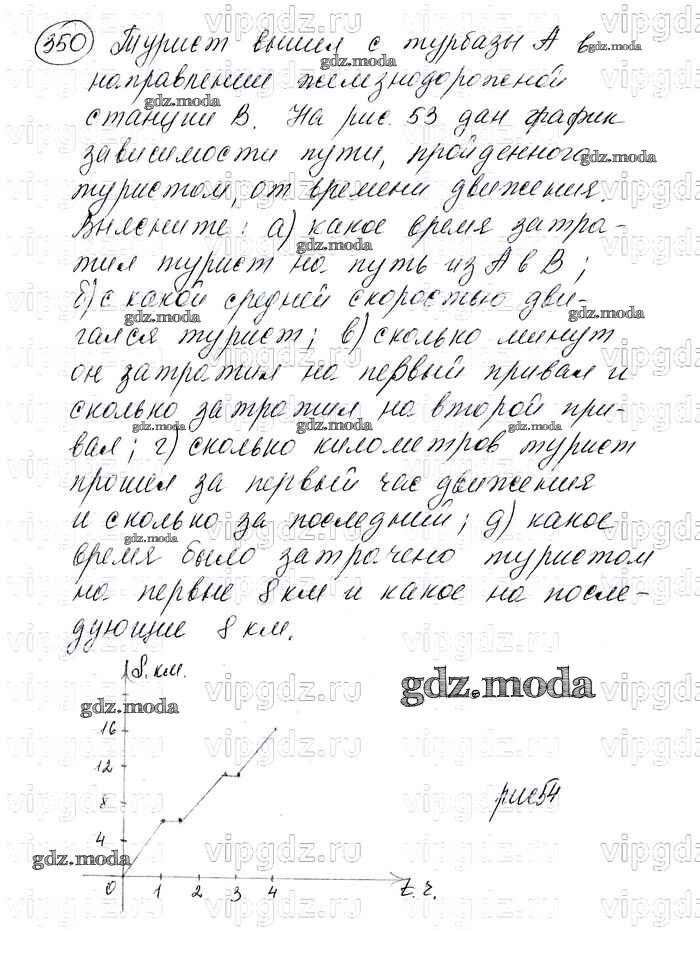 350 Турист вышел с турбазы А в
направлении железнодорожной
станции В. На рис. 53 дан график
зависимости пути, пройденного
туристом, от времени движения.
Выясните: а) какое время затра-
тил турист на путь из А в В;
б) с какой средней скоростью дви-
гался турист; в) сколько минут
он затратил на первый привал и
сколько затратил на второй при-
вал; г) сколько километров турист
прошел за первый час движения
и сколько за последний; д) какое
время было затрачено туристом
на первые 8 км и какое на после-
дующие 8 км.
S, км.
gdz.moda
16
12
8
рис 54
4
0 1 2 3 4 t, г.
vipgdz.ru